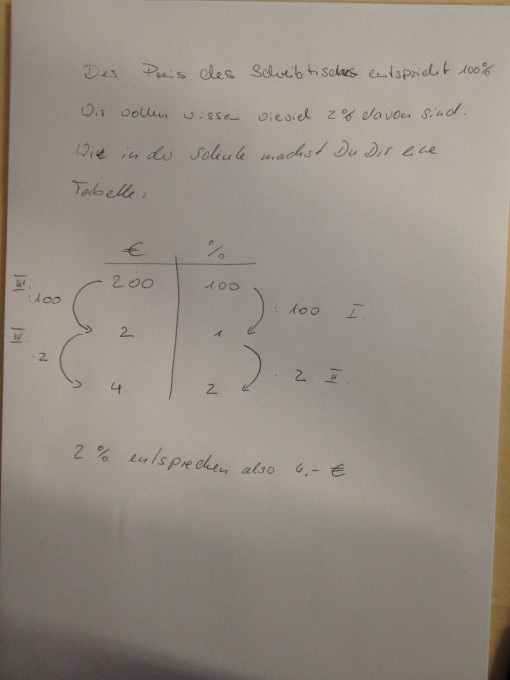 Der Preis des Schreibtisches entspricht 100%
Wir wollen wissen wieviel 2% davon sind.
Wie in der Schule machst Du Dir eine
Tabelle:
€ %
III. :100 200 100 : 100 I.
IV. · 2 2 1 · 2 II.
4 2
2 % entsprechen also 4,- €